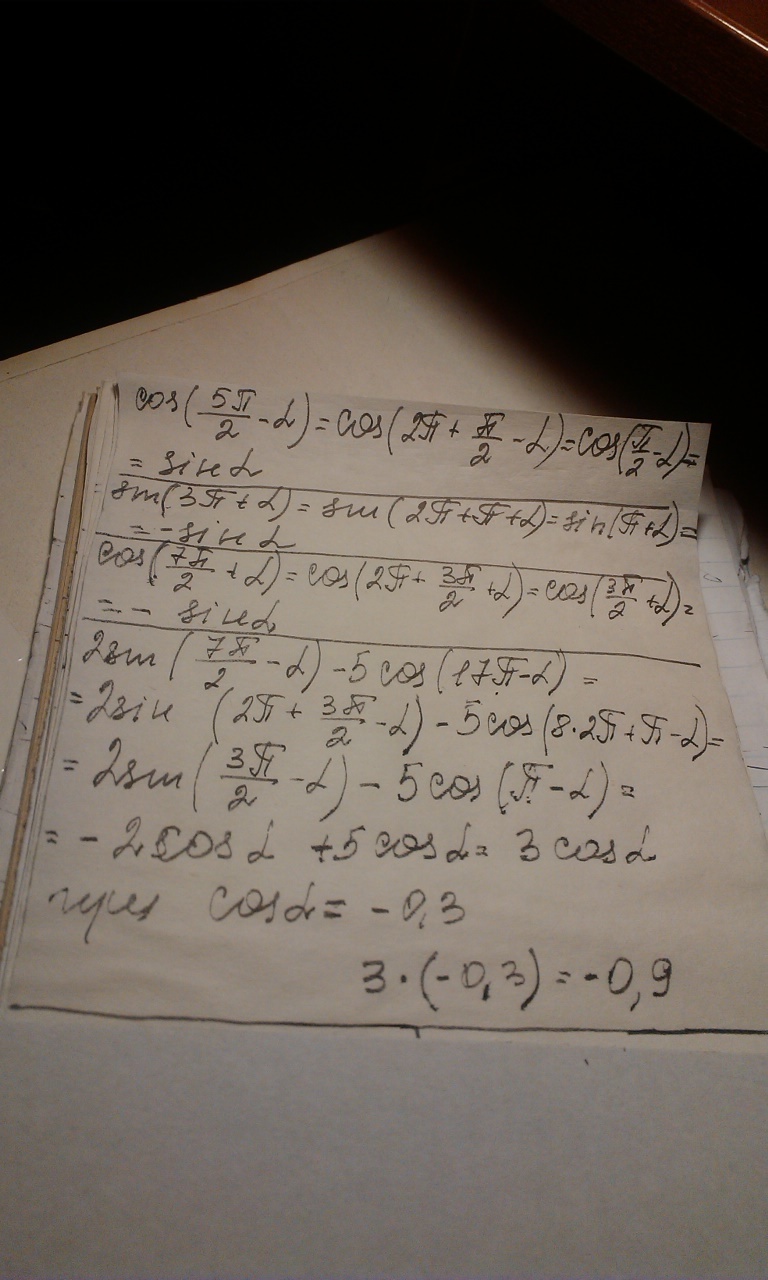 cos(5π/2 - α) = cos(2π + π/2 - α) = cos(π/2 - α) =
= sin α
sin(3π + α) = sin(2π + π + α) = sin(π + α) =
= - sin α
cos(7π/2 + α) = cos(2π + 3π/2 + α) = cos(3π/2 + α) =
= - sin α
2sin(7π/2 - α) - 5cos(17π - α) =
= 2sin (2π + 3π/2 - α) - 5cos(8·2π + π - α) =
= 2sin(3π/2 - α) - 5cos(π - α) =
= - 2cos α + 5cos α = 3 cos α
cos α = - 0,3
3·(-0,3) = -0,9